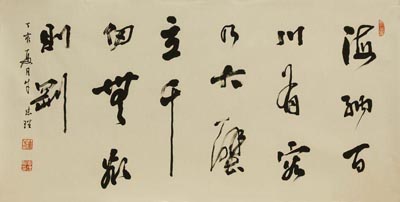 海納百
川有容
乃大壁
立千
仞無欲
則剛
丁亥夏月